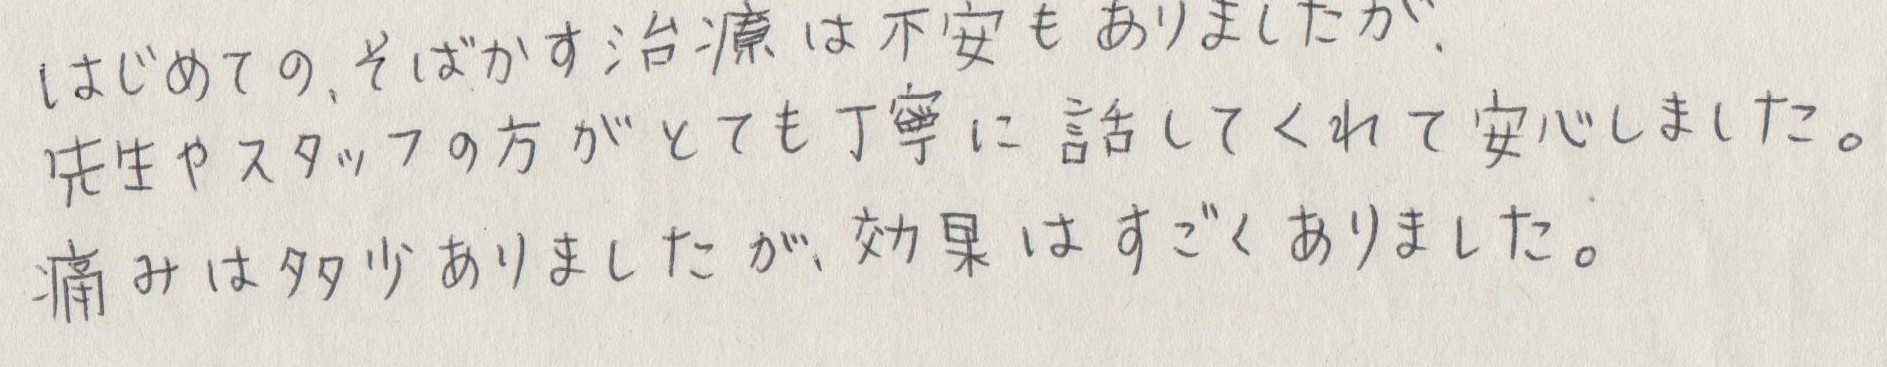 はじめての、そばかす治療は不安もありましたが、
先生やスタッフの方がとても丁寧に話してくれて安心しました。
痛みは多少ありましたが、効果はすごくありました。